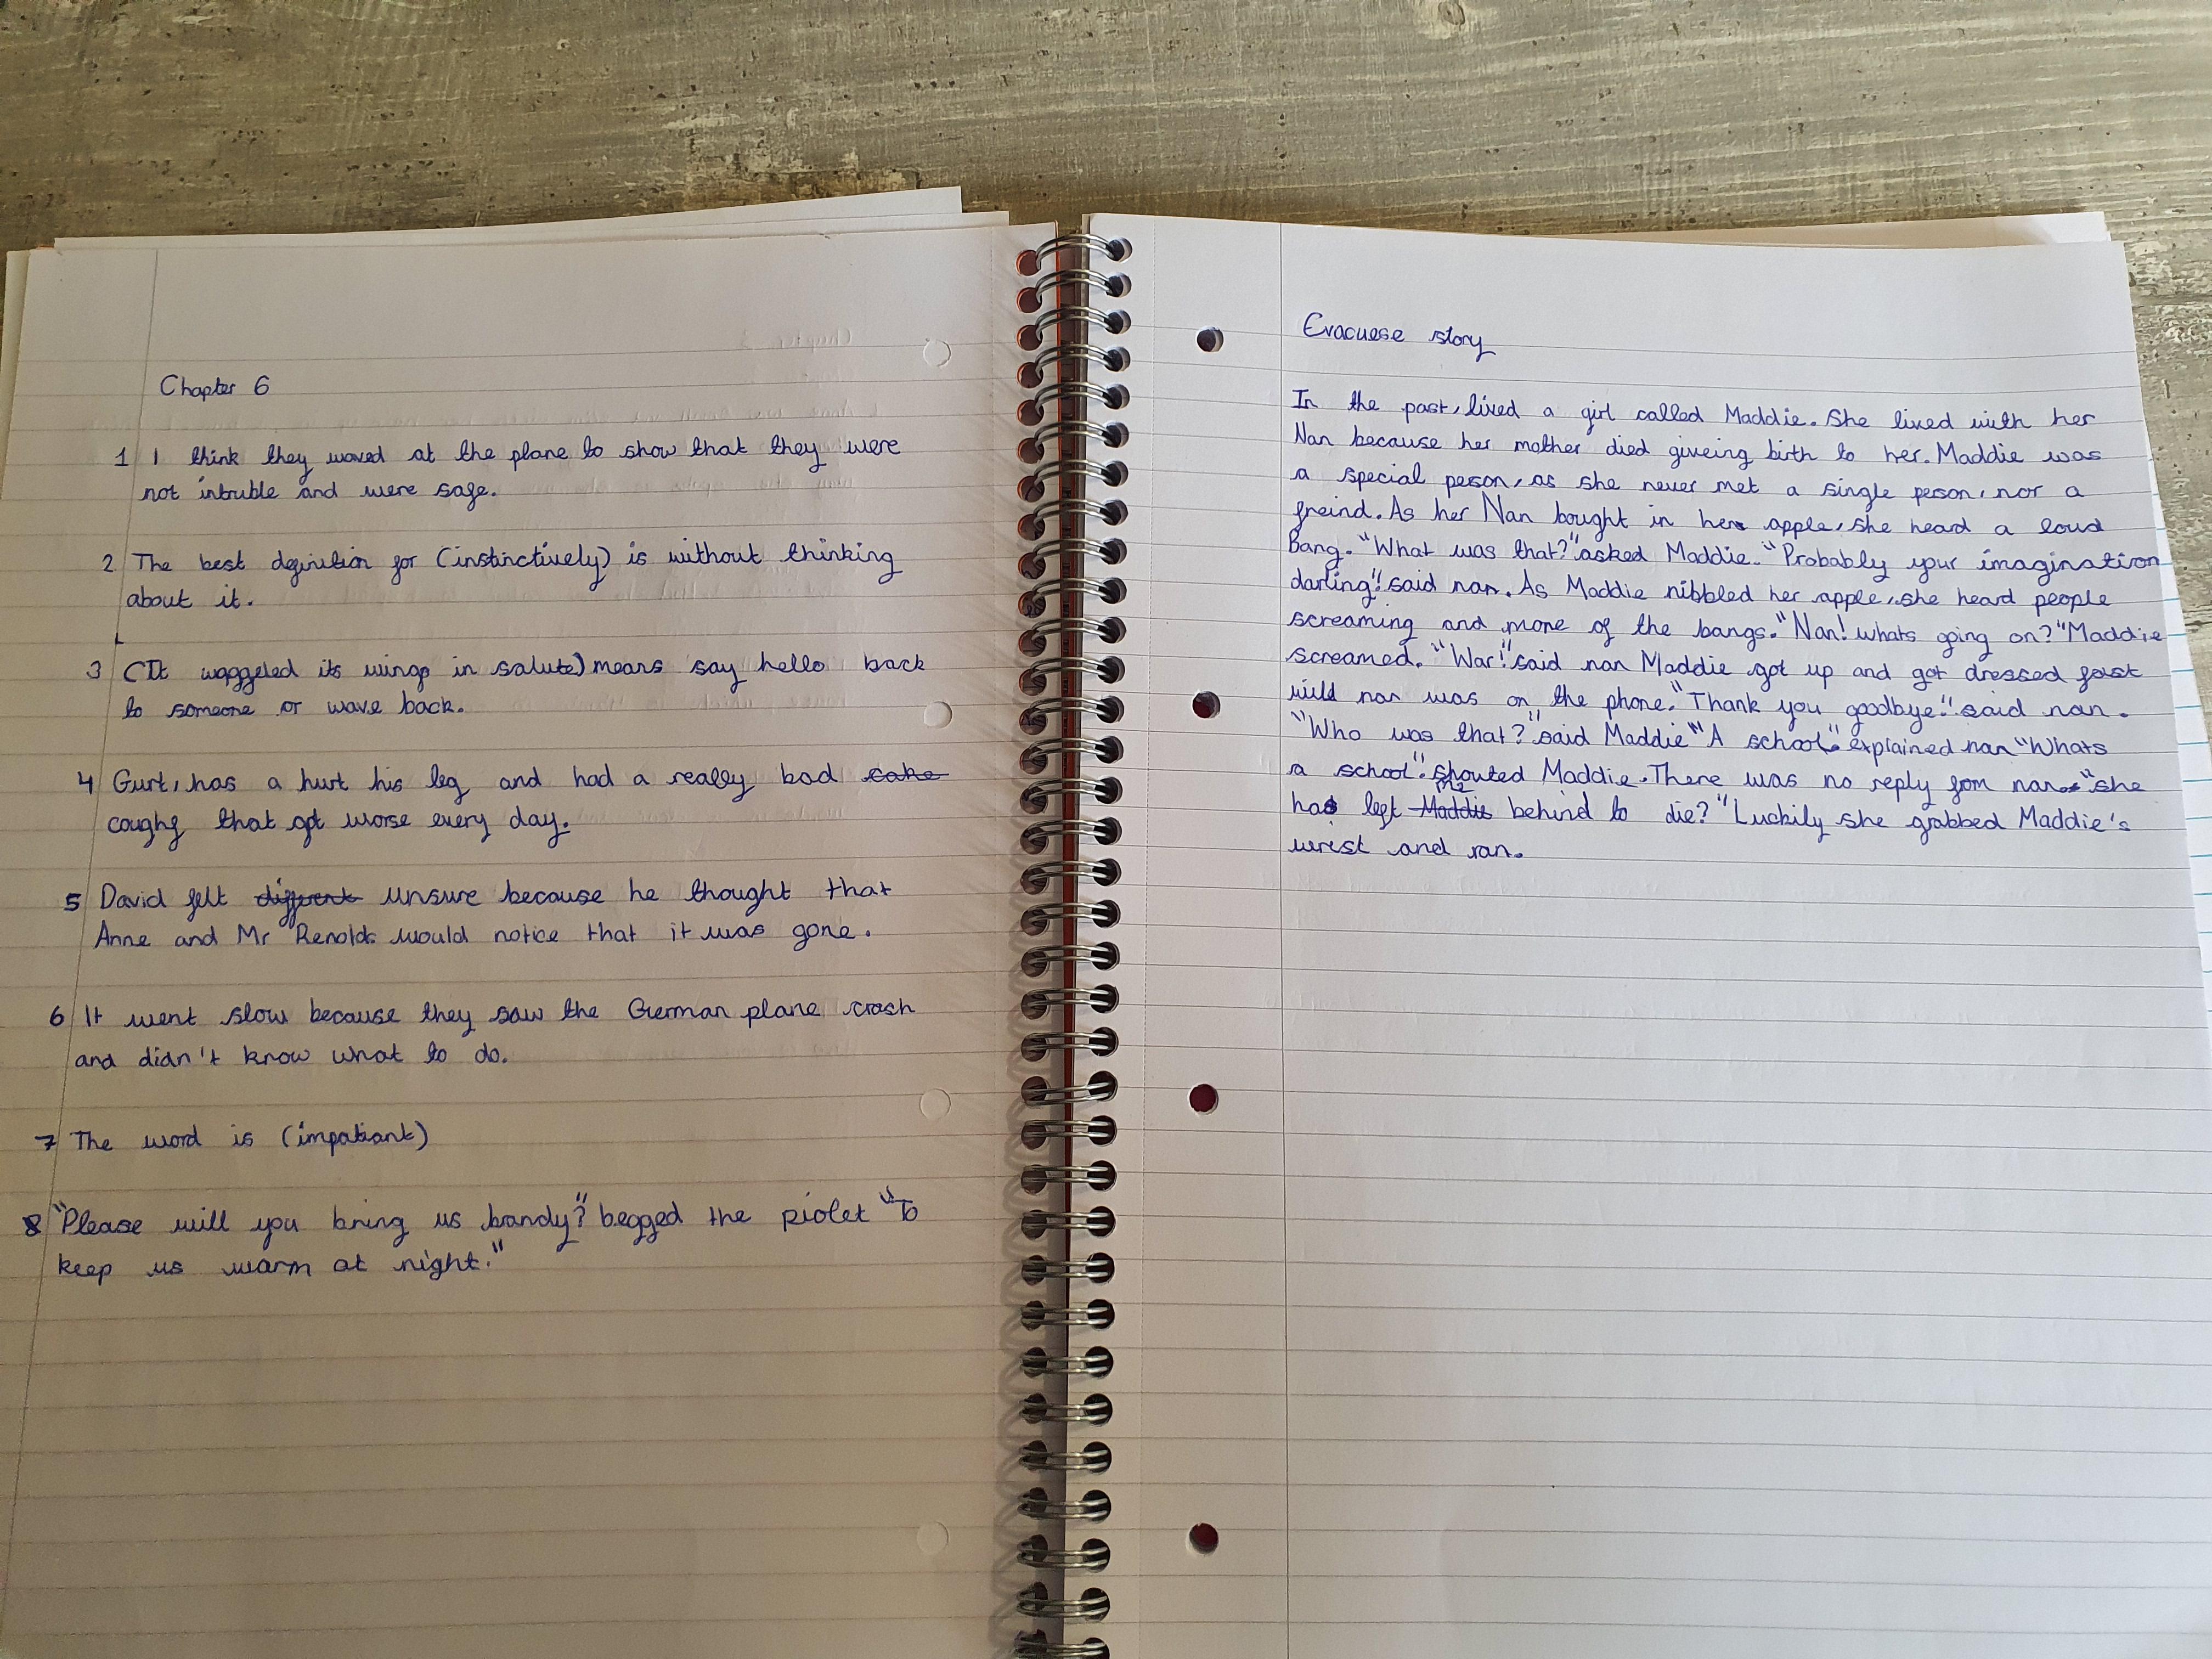 Chapter 6
1 I think they waved at the plane to show that they were
not intruble and were safe.
2 The best definition for (instinctively) is without thinking
about it.
3 (It waggeled its wings in salute) means say hello back
to someone or wave back.
4 Gurt, has a hurt his leg and had a really bad cake
coughf that got worse every day.
5 David felt different unsure because he thought that
Anne and Mr Renolds would notice that it was gone.
6 It went slow because they saw the German plane crash
and didn't know what to do.
7 The word is (impatiant)
8 "Please will you bring us brandy?" begged the piolet "To
keep us warm at night."
Evacuese story
In the past, lived a girl called Maddie. She lived with her
Nan because her mother died giveing birth to her. Maddie was
a special person, as she never met a single person, nor a
freind. As her Nan bought in her apple, she heard a loud
Bang. "What was that?" asked Maddie. "Probably your imagination
darling". said nan. As Maddie nibbled her apple, she heard people
screaming and more of the bangs. "Nan! whats going on?" Maddie
screamed. "War!" said nan Maddie got up and got dressed fast
will nan was on the phone. "Thank you goodbye." said nan.
"Who was that?" said Maddie "A school". explained nan "Whats
a school". shouted Maddie. There was no reply from nan. "she
me
had left Maddie behind to die?" Luckily she grabbed Maddie's
wrist and ran.